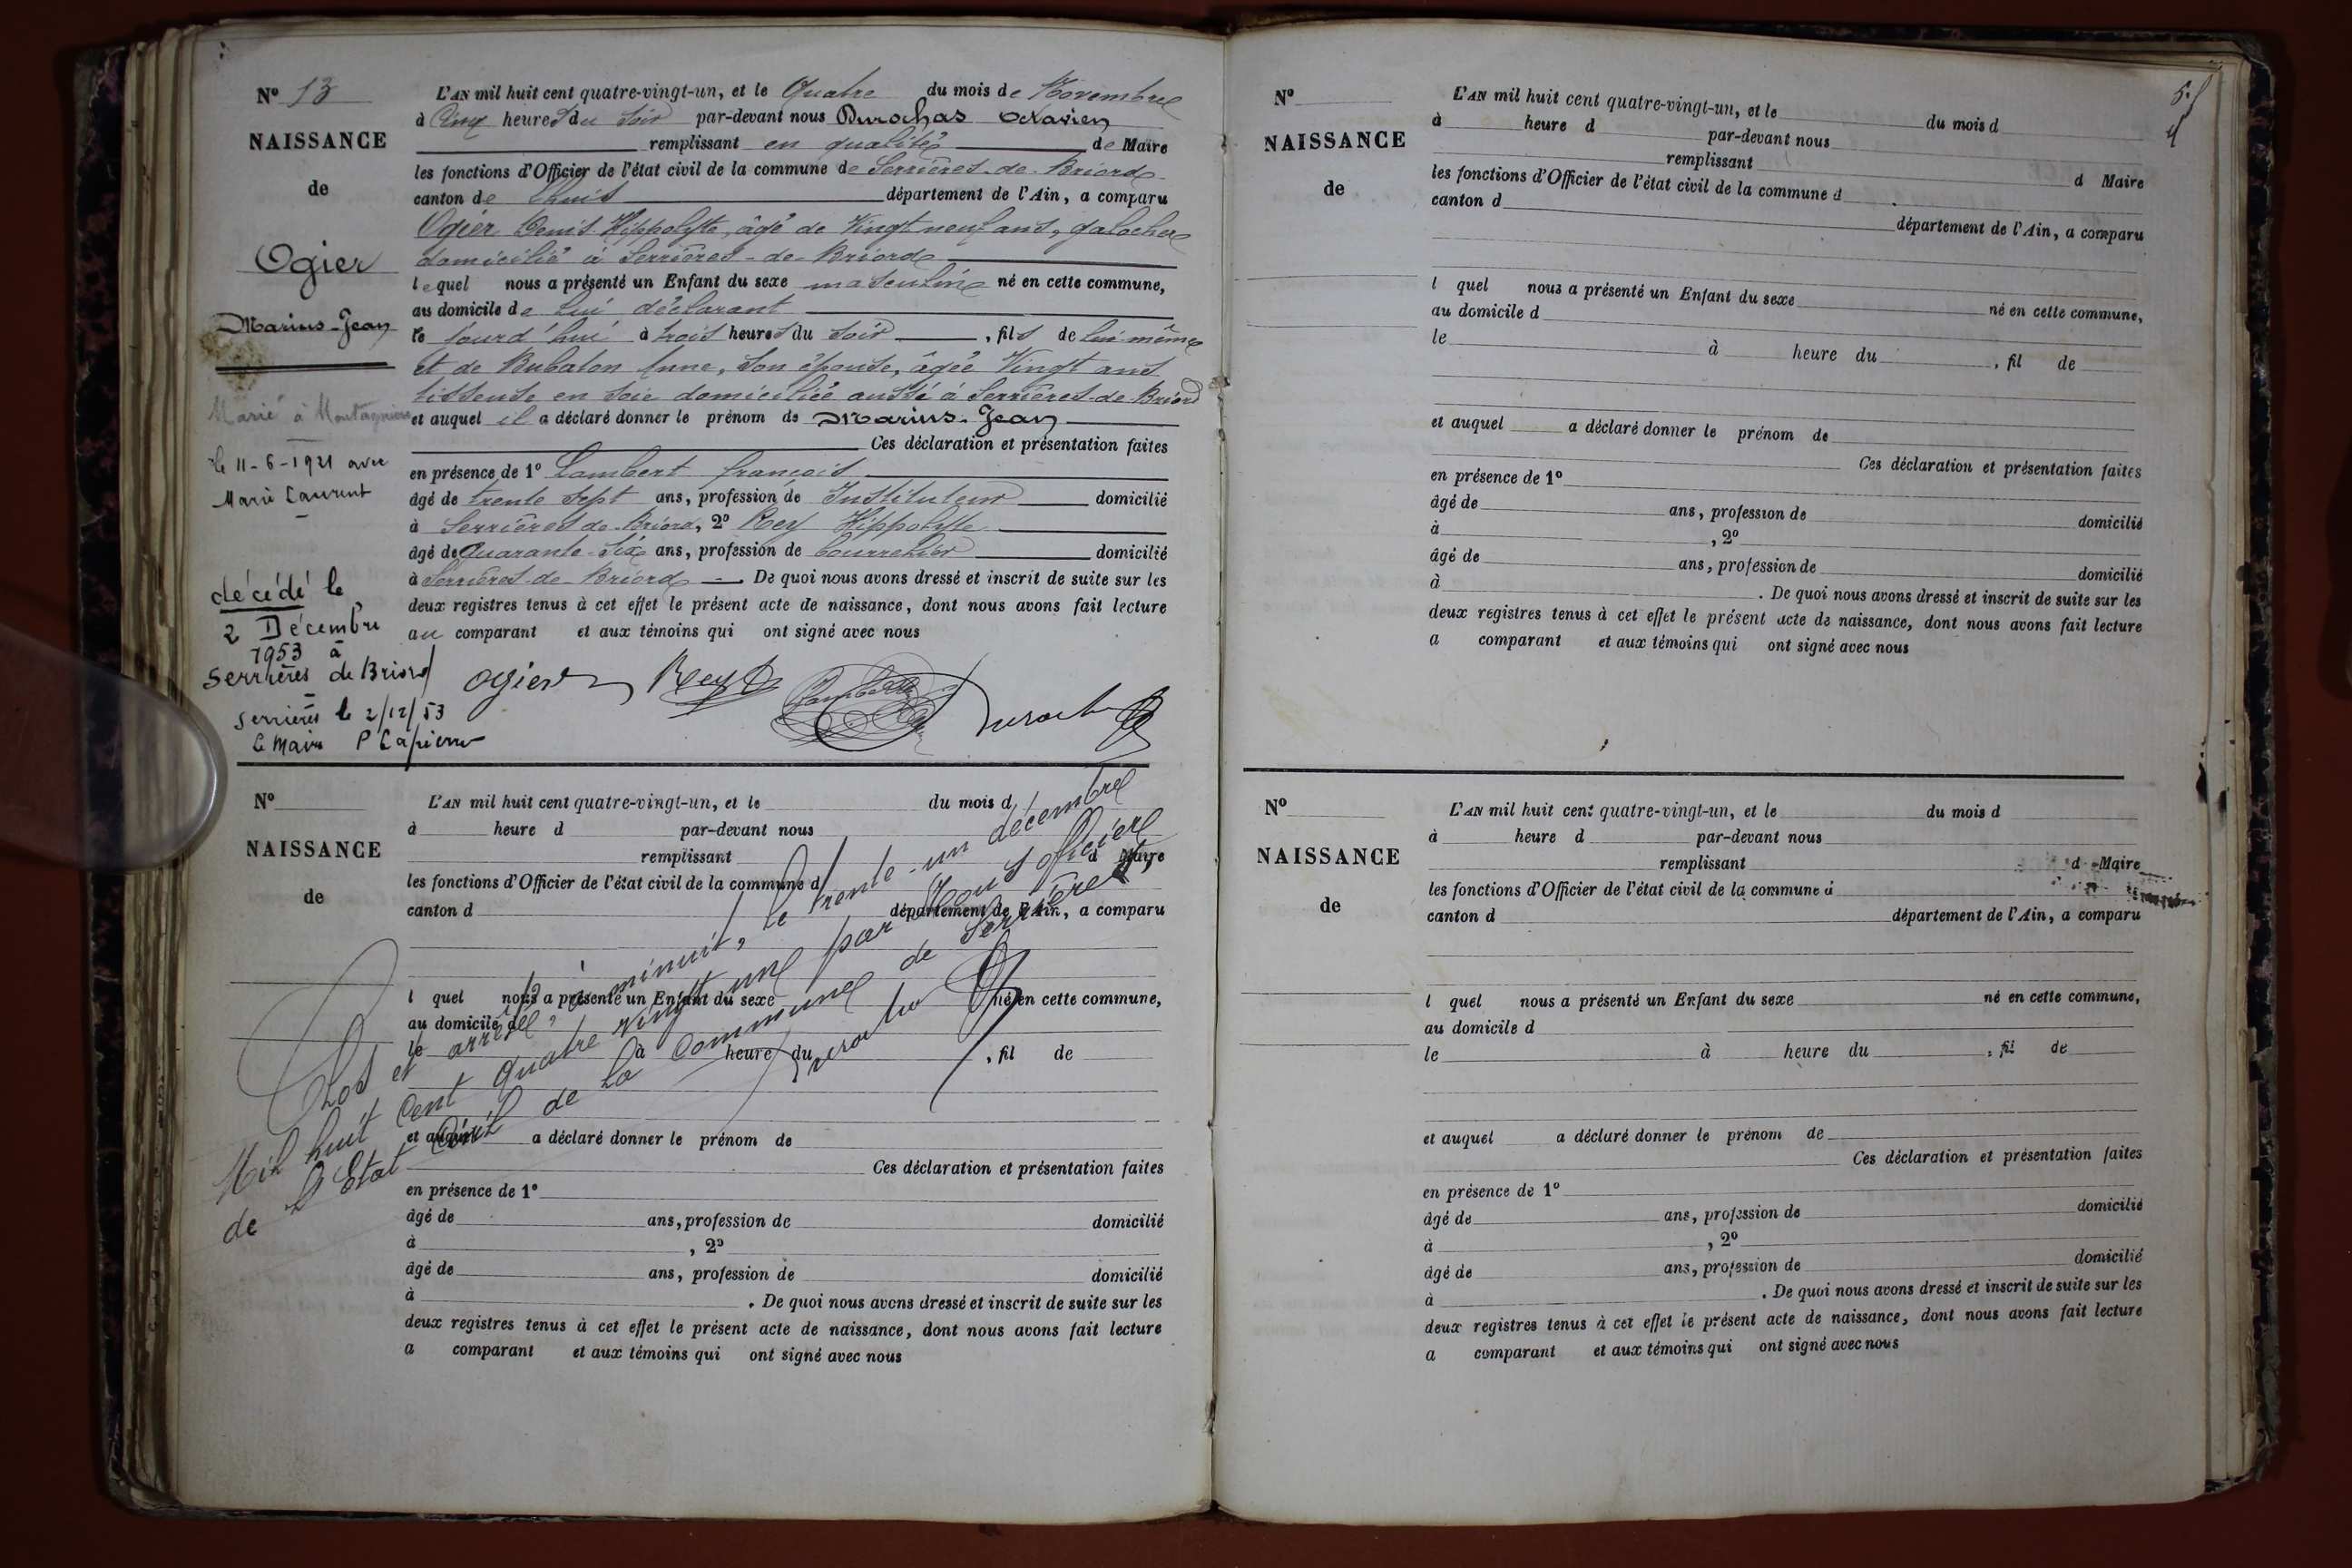 N° 13
NAISSANCE
de
Ogier
Marius-Jean
Marié à Montagnieu
le 11-6-1921 avec
Marie Laurent
décédé le
2 Décembre
1953 à
Serrières de Briord
Serrières le 2/12/53
Le Maire P
L'AN mil huit cent quatre-vingt-un, et le Quatre du mois de Novembre
à Cinq heures du soir par-devant nous Durochas Octavien
remplissant en qualité de Maire
les fonctions d'Officier de l'état civil de la commune de Serrières-de-Briord
canton de Lhuis département de l'Ain, a comparu
Ogier Denis Hippolyte, âgé de Vingt neuf ans, galocher
domicilié à Serrières-de-Briord
lequel nous a présenté un Enfant du sexe masculin né en cette commune,
au domicile de lui déclarant
le jourd'hui à trois heures du soir, fils de lui-même
et de Bubaton Anne, son épouse, âgée Vingt ans
tisseuse en soie domiciliée aussi à Serrières-de-Briord
et auquel il a déclaré donner le prénom de Marius-Jean
Ces déclaration et présentation faites
en présence de 1° Lambert françois
âgé de trente sept ans, profession de Instituteur domicilié
à Serrières de Briord, 2° Rey Hippolyte
âgé de Quarante-six ans, profession de bourrelier domicilié
à Serrières-de-Briord. De quoi nous avons dressé et inscrit de suite sur les
deux registres tenus à cet effet le présent acte de naissance, dont nous avons fait lecture
au comparant et aux témoins qui ont signé avec nous
Ogier Rey Lambert Durochas
N°
NAISSANCE
de
L'AN mil huit cent quatre-vingt-un, et le du mois d
à heure d par-devant nous
remplissant d Maire
les fonctions d'Officier de l'état civil de la commune d
canton d département de l'Ain, a comparu
l quel nous a présenté un Enfant du sexe né en cette commune,
au domicile d
le à heure du , fil de
et auquel a déclaré donner le prénom de
Ces déclaration et présentation faites
en présence de 1°
âgé de ans, profession de domicilié
à , 2°
âgé de ans, profession de domicilié
à . De quoi nous avons dressé et inscrit de suite sur les
deux registres tenus à cet effet le présent acte de naissance, dont nous avons fait lecture
a comparant et aux témoins qui ont signé avec nous
Clos et arrêté, à minuit, le trente-un décembre
Mil huit cent quatre vingt une par Nous officier
de l'Etat Civil de la Commune de Serrières,
Durochas
N°
NAISSANCE
de
L'AN mil huit cent quatre-vingt-un, et le du mois d
à heure d par-devant nous
remplissant d Maire
les fonctions d'Officier de l'état civil de la commune d
canton d département de l'Ain, a comparu
l quel nous a présenté un Enfant du sexe né en cette commune,
au domicile d
le à heure du , fil de
et auquel a déclaré donner le prénom de
Ces déclaration et présentation faites
en présence de 1°
âgé de ans, profession de domicilié
à , 2°
âgé de ans, profession de domicilié
à . De quoi nous avons dressé et inscrit de suite sur les
deux registres tenus à cet effet le présent acte de naissance, dont nous avons fait lecture
a comparant et aux témoins qui ont signé avec nous
N°
NAISSANCE
de
L'AN mil huit cent quatre-vingt-un, et le du mois d
à heure d par-devant nous
remplissant d Maire
les fonctions d'Officier de l'état civil de la commune d
canton d département de l'Ain, a comparu
l quel nous a présenté un Enfant du sexe né en cette commune,
au domicile d
le à heure du , fil de
et auquel a déclaré donner le prénom de
Ces déclaration et présentation faites
en présence de 1°
âgé de ans, profession de domicilié
à , 2°
âgé de ans, profession de domicilié
à . De quoi nous avons dressé et inscrit de suite sur les
deux registres tenus à cet effet le présent acte de naissance, dont nous avons fait lecture
a comparant et aux témoins qui ont signé avec nous